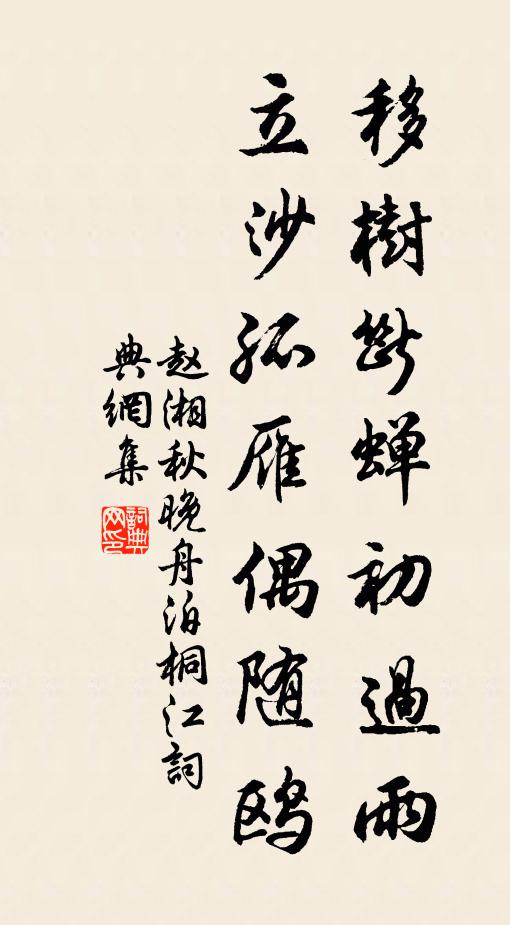 移樹断蝉初過雨
立沙孤雁偶随鸥
赵湘秋晚舟泊桐江詞
典網集
詞典
网印